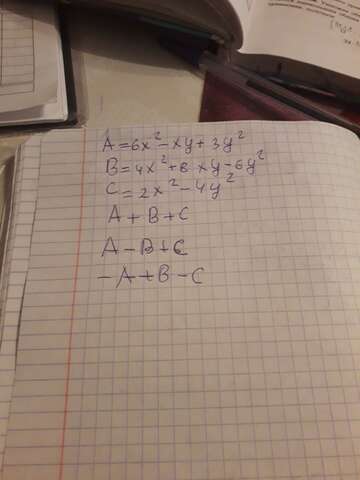 A = 6x² - xy + 3y²
B = 4x² + 8xy - 6y²
C = 2x² - 4y²
A + B + C
A - B + C
- A + B - C